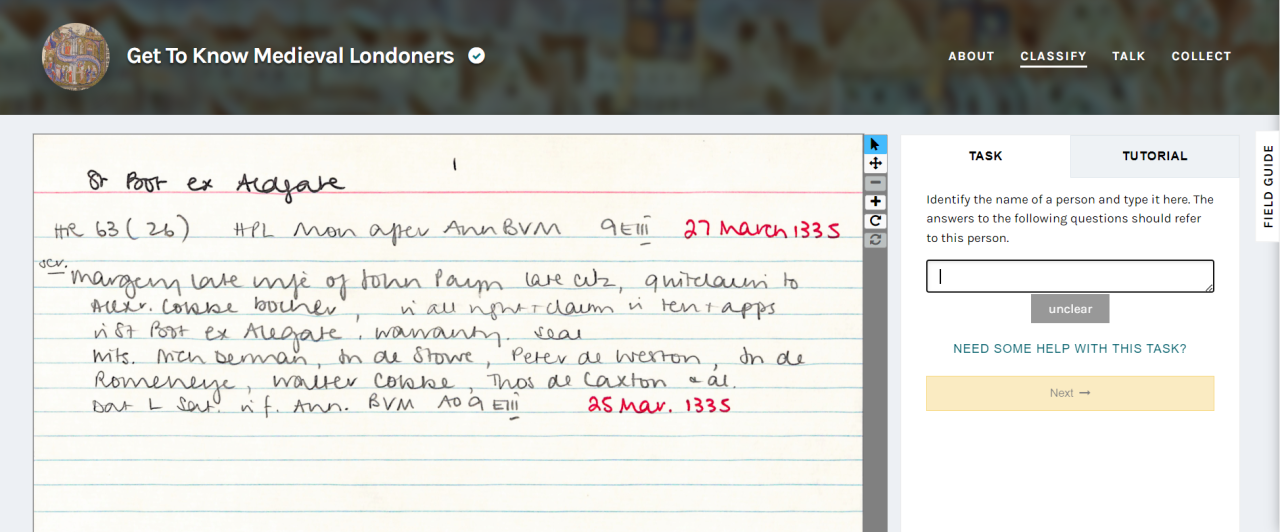 Get To Know Medieval Londoners
ABOUT CLASSIFY TALK COLLECT
1
St Bot ex Aldgate
HR 63 (26) HPL Mon after Ann BVM 9 EIII 27 March 1335
scr.
Margery late wife of John Payn late citz, quitclaim to
Alexr. Cobbe bocher, in all right + claim in ten + apps
in St Bot ex Alegate, warranty. seal
Wits. Rich Denman, Jn de Stowe, Peter de Weston, Jn de
Romeneye, Walter Cobbe, Thos de Caxton & al.
Dat L Sat. in f. Ann. BVM Ao 9 EIII 25 Mar. 1335
TASK
TUTORIAL
Identify the name of a person and type it here. The
answers to the following questions should refer
to this person.
unclear
NEED SOME HELP WITH THIS TASK?
Next →
FIELD GUIDE